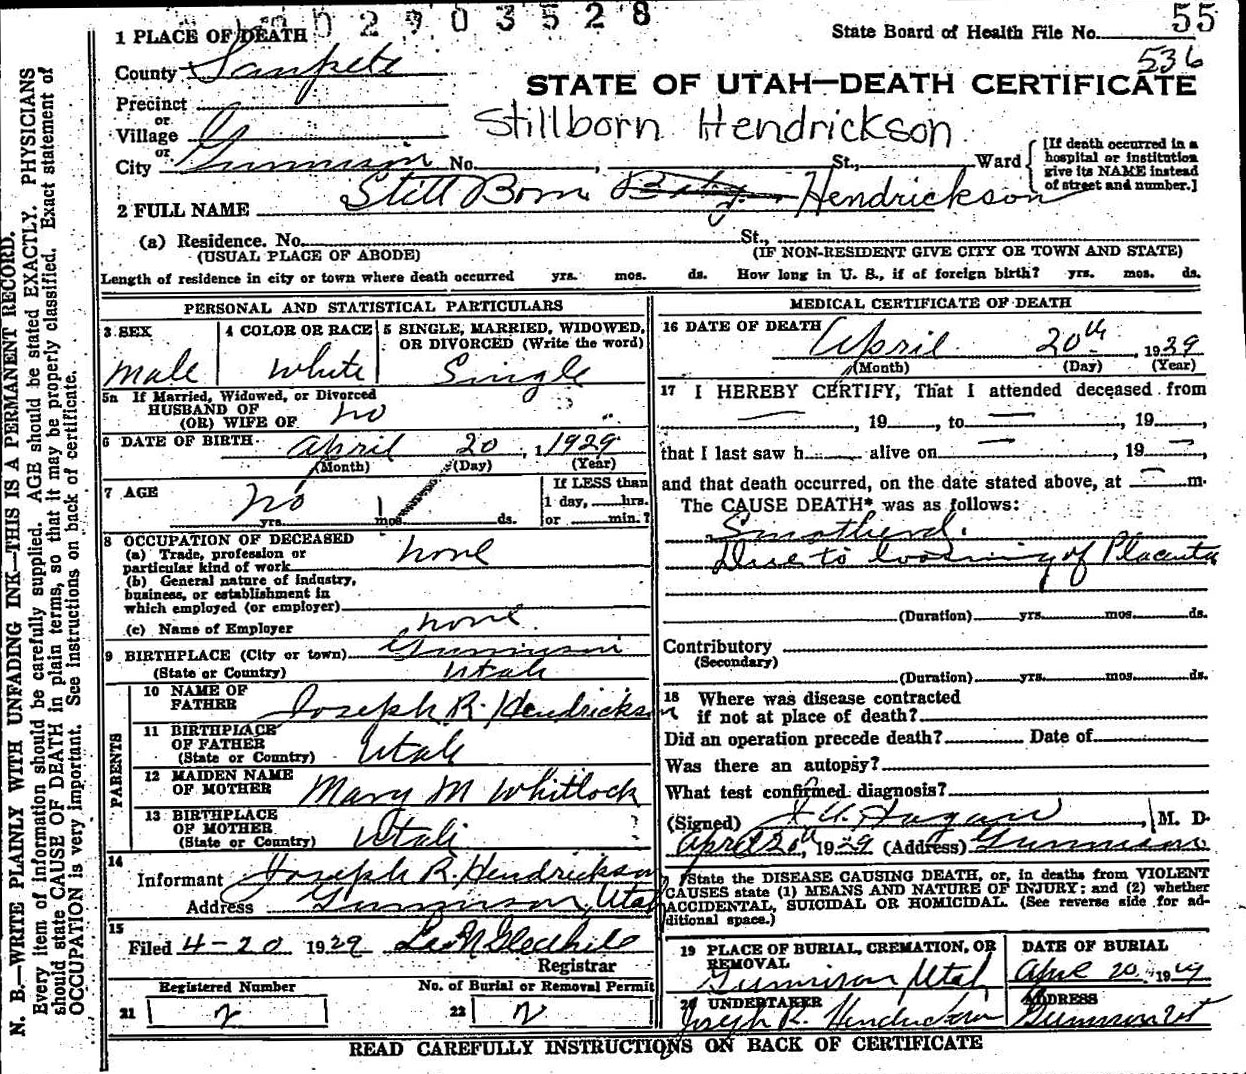 2903528
55
1 PLACE OF DEATH
State Board of Health File No.
536
County Sanpete
STATE OF UTAH—DEATH CERTIFICATE
Precinct
or
Village
Stillborn Hendrickson
or
City Gunnison No. , St., Ward
[If death occurred in a hospital or institution give its NAME instead of street and number.]
2 FULL NAME Still Born Baby Hendrickson
(a) Residence. No. St.,
(USUAL PLACE OF ABODE) (IF NON-RESIDENT GIVE CITY OR TOWN AND STATE)
Length of residence in city or town where death occurred yrs. mos. ds. How long in U. S., if of foreign birth? yrs. mos. ds.
PERSONAL AND STATISTICAL PARTICULARS
3 SEX
Male
4 COLOR OR RACE
White
5 SINGLE, MARRIED, WIDOWED, OR DIVORCED (Write the word)
Single
5a If Married, Widowed, or Divorced
HUSBAND OF
(OR) WIFE OF no
6 DATE OF BIRTH April 20, 1929
(Month) (Day) (Year)
7 AGE no
yrs. mos. ds.
If LESS than
1 day, hrs.
or min.?
8 OCCUPATION OF DECEASED
(a) Trade, profession or
particular kind of work none
(b) General nature of industry,
business, or establishment in
which employed (or employer)
(c) Name of Employer none
9 BIRTHPLACE (City or town) Gunnison
(State or Country) Utah
PARENTS
10 NAME OF
FATHER Joseph R. Hendrickson
11 BIRTHPLACE
OF FATHER
(State or Country) Utah
12 MAIDEN NAME
OF MOTHER Mary M Whitlock
13 BIRTHPLACE
OF MOTHER
(State or Country) Utah
14
Informant Joseph R. Hendrickson
Address Gunnison, Utah
15
Filed 4-20 1929
Registrar
Registered Number
21 2
No. of Burial or Removal Permit
22 2
MEDICAL CERTIFICATE OF DEATH
16 DATE OF DEATH April 20th, 1929
(Month) (Day) (Year)
17 I HEREBY CERTIFY, That I attended deceased from
— , 19 —, to — , 19 —,
that I last saw h — alive on — , 19 —,
and that death occurred, on the date stated above, at — m.
The CAUSE DEATH* was as follows:
Smotherd.
Due to loosning of Placenta
(Duration) yrs. mos. ds.
Contributory
(Secondary)
(Duration) yrs. mos. ds.
18 Where was disease contracted
if not at place of death?
Did an operation precede death? Date of
Was there an autopsy?
What test confirmed diagnosis?
(Signed) Hagan, M. D.
April 20th, 1929 (Address) Gunnison
* State the DISEASE CAUSING DEATH, or, in deaths from VIOLENT
CAUSES state (1) MEANS AND NATURE OF INJURY; and (2) whether
ACCIDENTAL, SUICIDAL OR HOMICIDAL. (See reverse side for ad-
ditional space.)
19 PLACE OF BURIAL, CREMATION, OR
REMOVAL
Gunnison Utah
DATE OF BURIAL
April 20 1929
20 UNDERTAKER
Joseph R. Hendrickson
ADDRESS
Gunnison Ut
READ CAREFULLY INSTRUCTIONS ON BACK OF CERTIFICATE
N. B.—WRITE PLAINLY WITH UNFADING INK—THIS IS A PERMANENT RECORD.
Every item of information should be carefully supplied. AGE should be stated EXACTLY. PHYSICIANS
should state CAUSE OF DEATH in plain terms, so that it may be properly classified. Exact statement of
OCCUPATION is very important. See instructions on back of certificate.